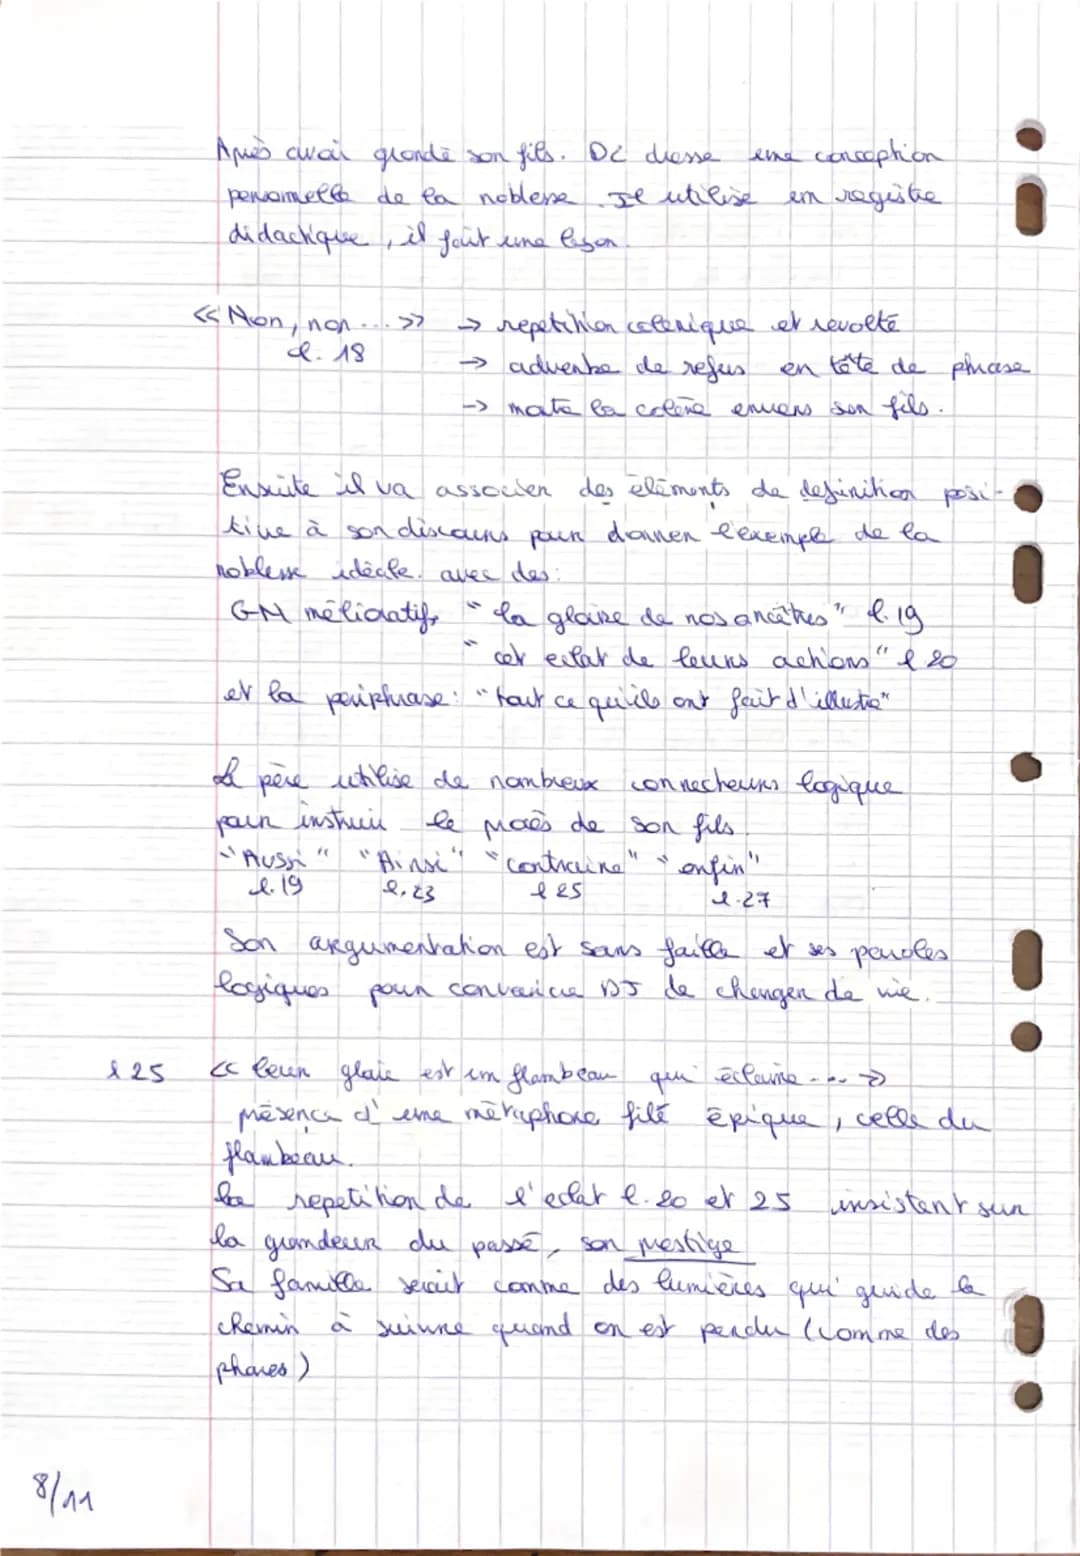 Après avoir grondé son fils. DL dresse une conception
personnelle de la noblesse. Il utilise un registre
didactique, il fait une leçon.
<< Non, non ... >> → repetition colerique et revolté
l. 18
→ adverbe de refus en tête de phrase
→ mate la colère envers son fils.
Ensuite il va associer des éléments de definition posi-
tive à son discours pour donner l'exemple de la
noblesse idéale. avec des:
GN mélioratifs "la gloire de nos ancêtres" l. 19
"cet eclat de leurs actions" l 20
et la périphrase: "tout ce qu'ils ont fait d'illustre"
Le père utilise de nombreux connecteurs logique
pour instruir le procès de son fils.
"Aussi" "Ainsi" "contraire" "enfin"
l. 19 l. 23 l 25 l. 27
Son argumentation est sans faille et ses paroles
logiques pour convaincre DJ de changer de vie.
l 25 << leur gloire est un flambeau qui éclaire ... >>
présence d'une métaphore filé épique, celle du
flambeau.
la repetition de l'eclat l. 20 et 25 insistent sur
la grandeur du passé, son prestige
Sa famille serait comme des lumières qui guide le
chemin à suivre quand on est perdu (comme des
phares)
8/11